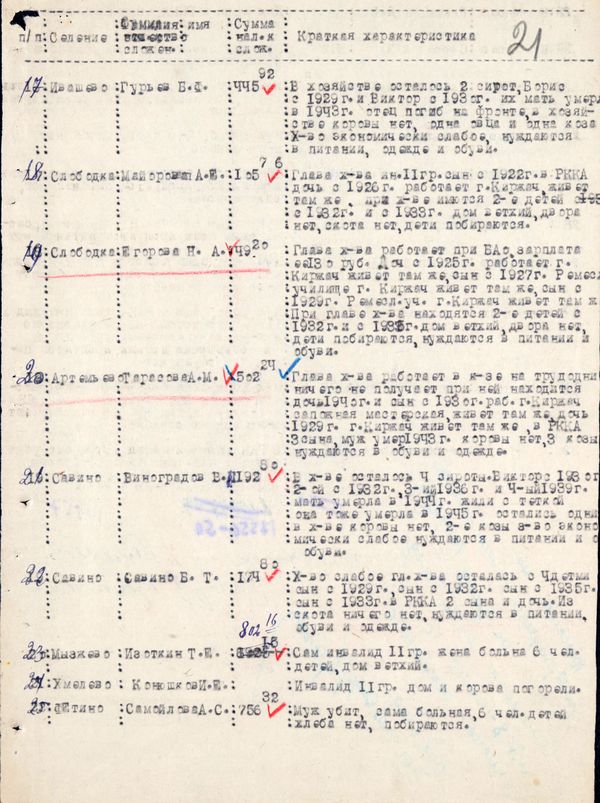 21
п/п Селение Фамилия имя отчество сложен. Сумма нал.к слож. Краткая характеристика
17 Ивашево Гурьев Б.Ф. 445 92 В хозяйстве осталось 2 сирот, Борис
с 1929г. и Виктор с 193ог. их мать умерла
в 1943г. отец погиб на фронте, в хозяй-
стве коровы нет, одна овца и одна коза
Х-во экономически слабое, нуждаются
в питании, одежде и обуви.
18 Слободка Майорова А.Е. 1о5 76 Глава х-ва ин.IIгр. сын с 1922г. в РККА
дочь с 1926г. работает г.Киржач живет
там же. при х-ве имеются 2-е детей
с 1932г. и с 1933г. дом ветхий, двора
нет, скота нет, дети побираются.
19 Слободка Егорова Н. А. 49 2о Глава х-ва работает при БАо, зарплата
ее 13о руб. Доч с 1925г. работает г.
Киржач живет там же, сын с 1927г. Ремесл
училище г. Киржач живет там же, сын с
1929г. Ремесл.уч. г.Киржач живет там ж
При главе х-ва находятся 2-е детей с
1932г. и с 1935г. дом ветхий, двора нет,
дети побираются, нуждаются в питании и
обуви.
20 Артемьево Тарасова А.М. 5о2 24 Глава х-ва работает в к-зе на трудодни
ничего не получает при ней находится
дочь 194ог. и сын с 193ог. раб. г.Киржач
сапожная мастерская, живет там же, дочь
1929г. г.Киржач живет там же, в РККА
3 сына, муж умер 1943г. коровы нет, 3 козы
нуждаются в обуви и одежде.
21 Савино Виноградов В. 1192 8о В х-ве осталось 4 сироты. Виктор с 193ог
2-ой с 1932г., 3-ий 1936г. и 4-ый 1939г.
мать умерла в 1944г. жили с теткой
она тоже умерла в 1945г. остались одни
в х-ве коровы нет, 2-е козы з-во эконо-
мически слабое нуждаются в питании и о
обуви.
22 Савино Савино Б. Т. 174 8о Х-во слабое гл.х-ва осталась с 4 детми
сын с 1929г., сын с 1932г. сын с 1935г.
сын с 1933г. в РККА 2 сына и дочь. Из
скота ничего нет, нуждаются в питании,
обуви и одежде.
802 16
23 Мызжево Изоткин Т.Е. 15 Сам инвалид IIгр. жена больна 6 чел.
детей, дом ветхий.
24 Хмелево Конюшков И.Е. Инвалид IIгр. дом и корова погорели.
25 Фетино Самойлова А.С. 756 32 Муж убит, сама больная, 6 чел. детей
хлеба нет, побираются.